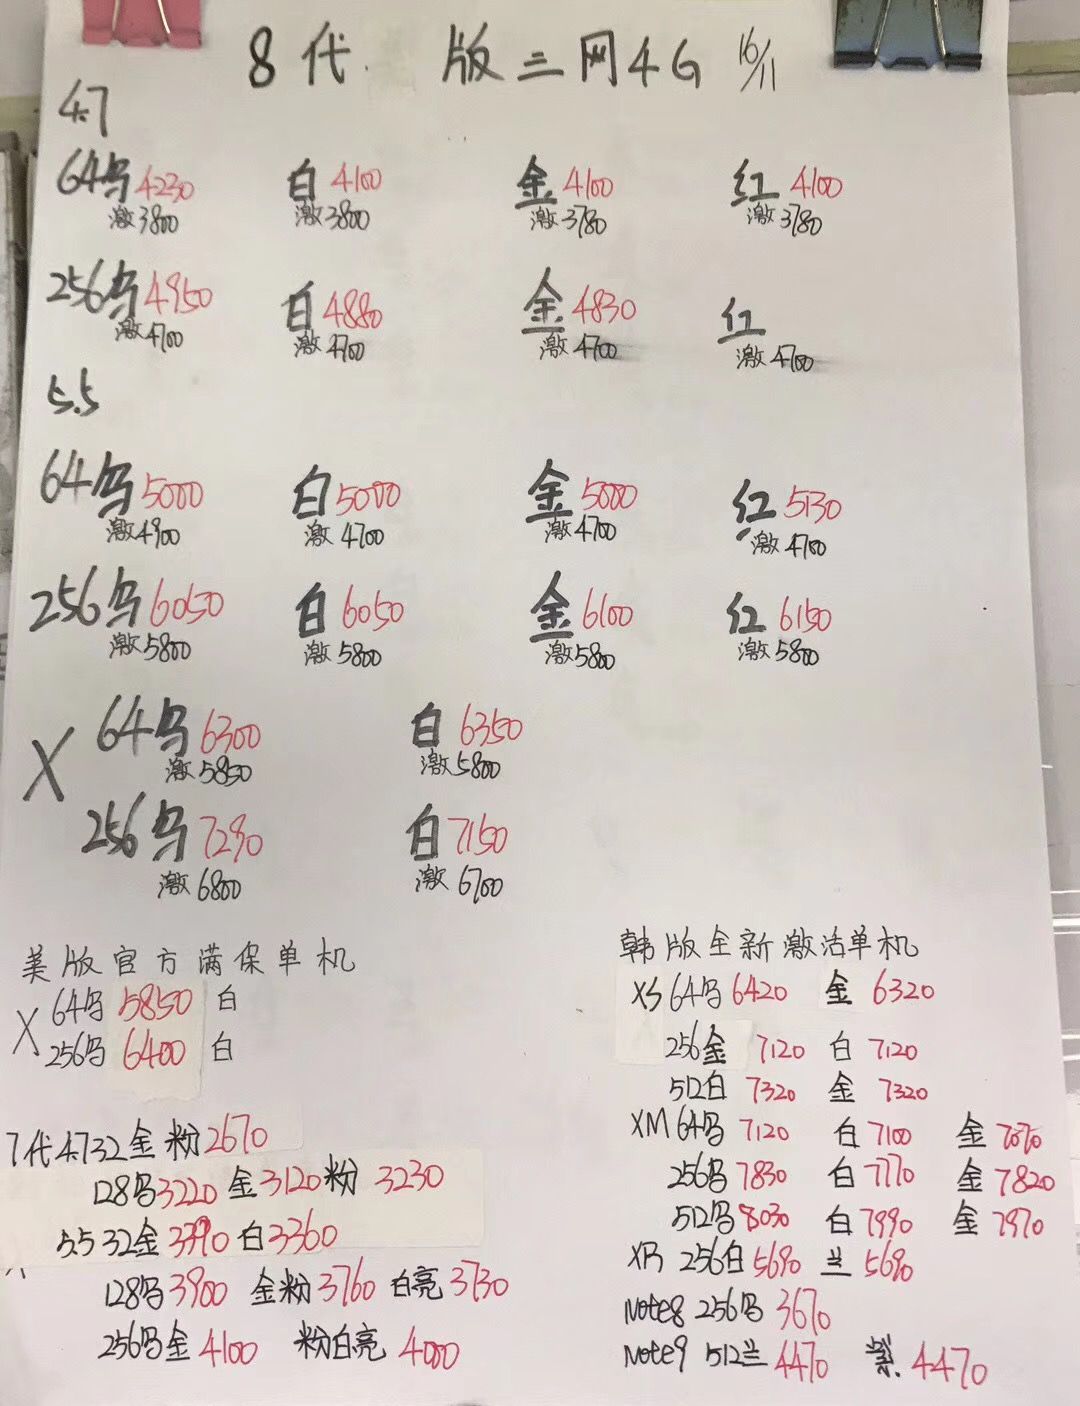 8代 版三网4G 16/11
4.7
64乌4230 白4100 金4100 红4100
激3800 激3800 激3780 激3780
256乌4950 白4880 金4830 红
激4700 激4700 激4700 激4700
5.5
64乌5000 白5000 金5000 红5130
激4900 激4700 激4700 激4700
256乌6050 白6050 金6100 红6150
激5800 激5800 激5800 激5800
X 64乌6300 白6350
激5850 激5800
256乌7290 白7150
激6800 激6700
美版官方满保单机
X 64乌 5850 白
256乌 6400 白
7代4.732金粉2670
128乌3220金3120粉3230
5.532金3390白3360
128乌3900 金粉3760 白亮3730
256乌金4100 粉白亮4000
韩版全新激活单机
XS 64乌6420 金6320
256金7120 白7120
512白7320 金7320
XM 64乌7120 白7100 金7070
256乌7830 白7770 金7820
512乌8030 白7990 金7970
XR 256白5690 兰5690
Note8 256乌3670
Note9 512兰4470 紫4470